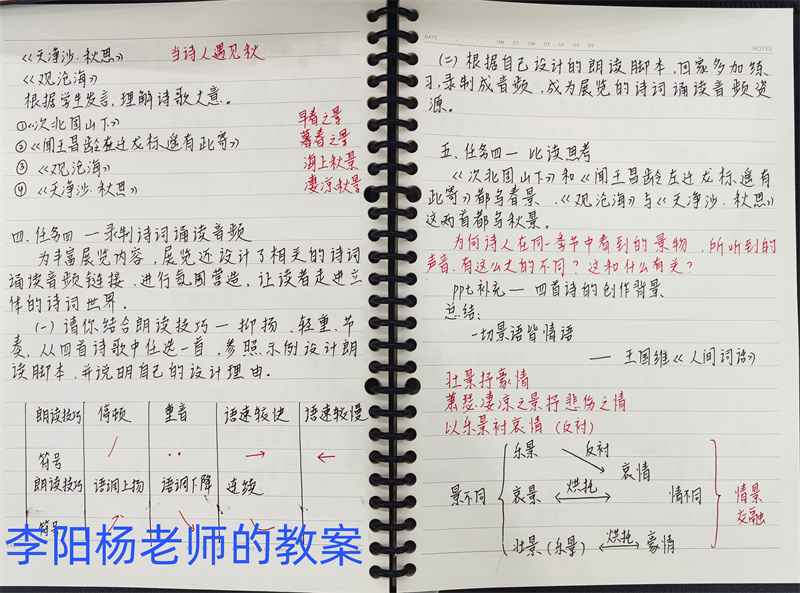 《天净沙·秋思》 当诗人遇见秋
《观沧海》
根据学生发言,理解诗歌大意。
①《次北固山下》 早春之景
②《闻王昌龄左迁龙标遥有此寄》 暮春之景
③《观沧海》 海上秋景
④《天净沙·秋思》 凄凉秋景
四、任务四—录制诗词诵读音频
为丰富展览内容,展览还设计了相关的诗词
诵读音频链接,进行氛围营造,让读者走进立
体的诗词世界.
(一)请你结合朗读技巧—抑扬、轻重、节
奏,从四首诗歌中任选一首,参照示例设计朗
读脚本,并说明自己的设计理由.
朗读技巧 停顿 重音 语速较快 语速较慢
符号 / ·· → ←
朗读技巧 语调上扬 语调下降 连续
符号
李阳杨老师的教案
DATE
NOTES
(二)根据自己设计的朗读脚本,回家多加练
习,录制成音频,成为展览的诗词诵读音频资
源。
五、任务四—比读思考
《次北固山下》和《闻王昌龄左迁龙标遥有
此寄》都写春景,《观沧海》与《天净沙·秋思》
这两首都写秋景。
为何诗人在同一季节中看到的景物,所听到的
声音,有这么大的不同?这和什么有关?
ppt补充—四首诗的创作背景
总结:
一切景语皆情语
——王国维《人间词话》
壮景抒豪情
萧瑟、凄凉之景抒悲伤之情
以乐景衬哀情(反衬)
乐景 反衬
哀情
景不同 哀景 烘托 情不同 情景
交融
壮景(乐景) 烘托 豪情